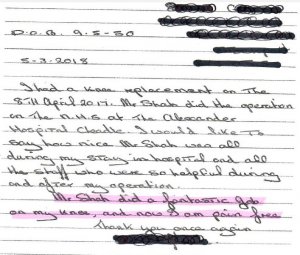 D.O.B. 9-5-50
5-3-2018
I had a knee replacement on the
8TH April 2017. Mr Shah did the operation
on The N.H.S at The Alexander
Hospital Cheadle. I would like to
say how nice Mr Shah was all
during my stay in hospital and all
the staff who were so helpful during
and after my operation.
Mr Shah did a fantastic Job
on my knee, and now I am pain free
Thank you once again